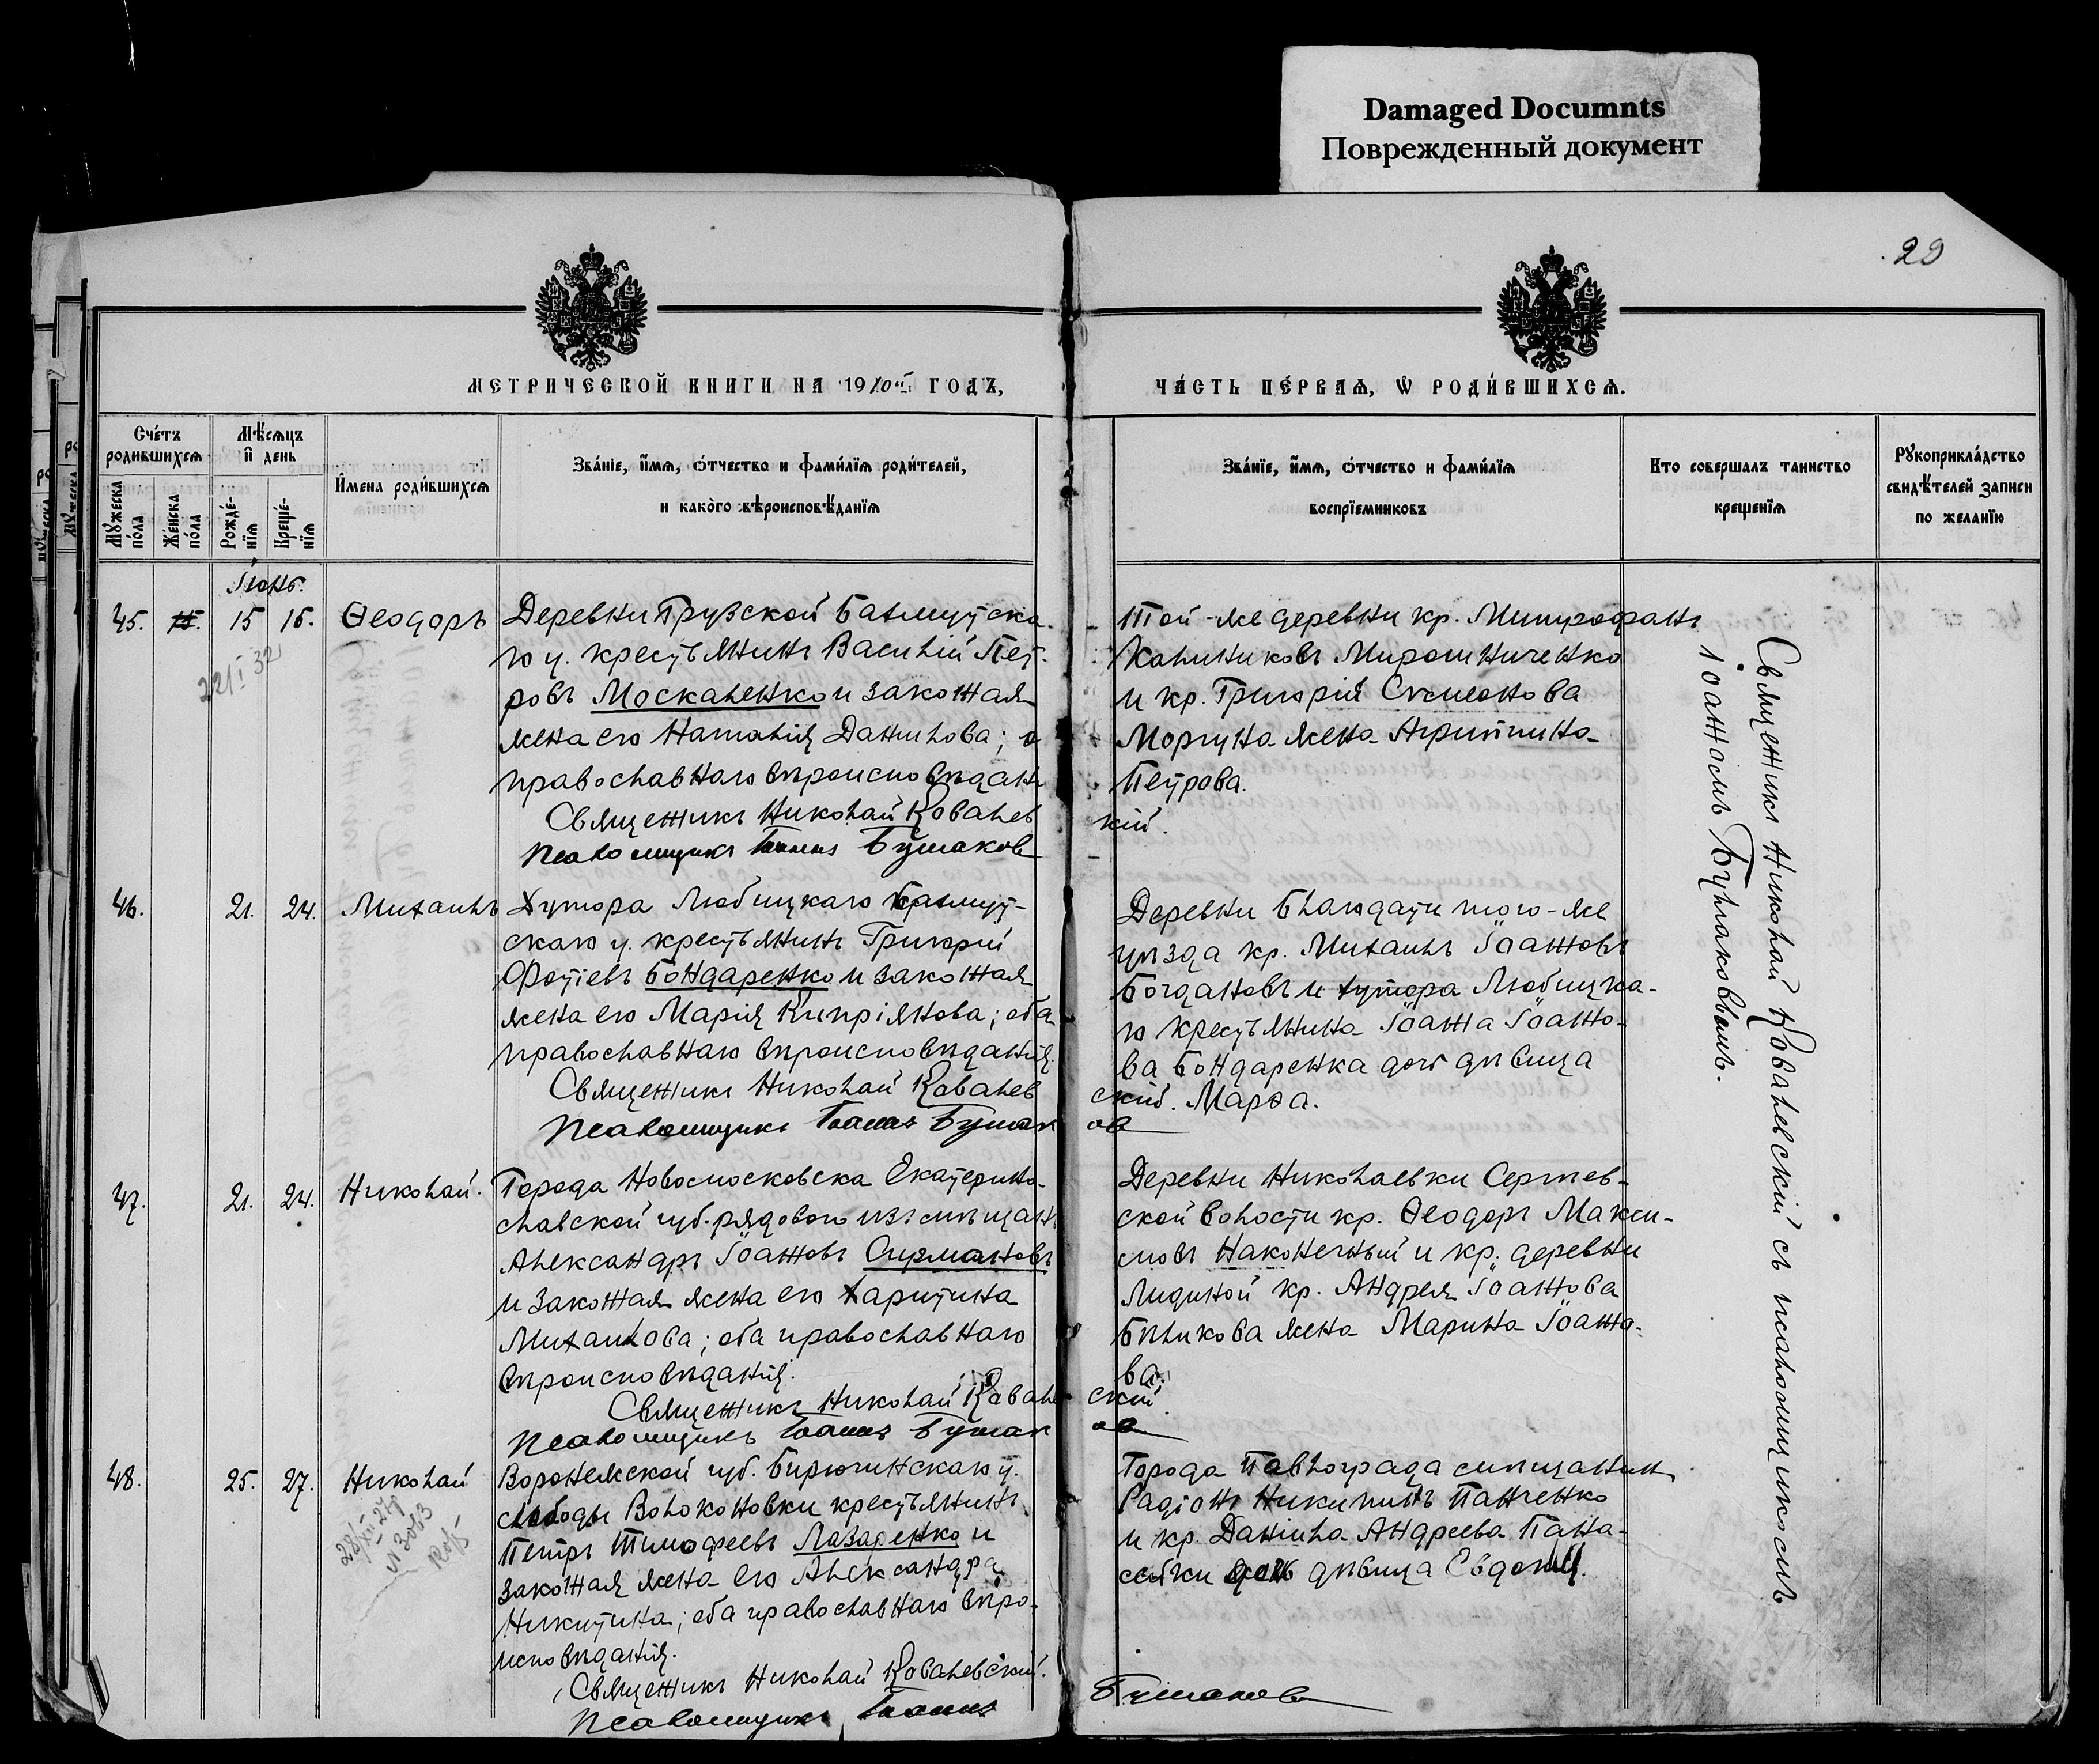 Damaged Documnts
Поврежденный документ
29
МЕТРИЧЕСКОЙ КНИГИ НА 1910й ГОДЪ,
ЧА́СТЬ ПЕ́РВАѦ, Ѡ҆ РОДИ́ВШИХСѦ.
Сче́тъ родившихсѧ
Мѣ́сѧцъ и҆ день
Имена роди́вшихсѧ
Зва́нїе, и҆́мѧ, ѻ҆́тчество и фами́лїѧ роди́телей,
и како́го вѣроисповѣ́данїѧ
Зва́нїе, и҆́мѧ, ѻ҆́тчество и фами́лїѧ
воспрїемниковъ
Кто совершалъ таинство
крещенїѧ
Рꙋкоприкла́дство
свидѣ́телей записи
по желанїю
Мꙋжеска по́ла
Же́нска по́ла
Рожде́нїѧ
Креще́нїѧ
Іюнь.
45.
15
16.
Ѳеодоръ
Деревни Грузской Бахмутска-
го у. крестьянинъ Василій Пет-
ровъ Москаленко и законная
жена его Наталія Данилова;
православнаго вѣроисповѣдан
Священникъ Николай Ковалев
кій.
Псаломщикъ Іоаннъ Бушаков
Той-же деревни кр. Митрофанъ
Калиниковъ Мирошниченко
и кр. Григорія Симеонова
Моргуна жена Агриппина
Петрова.
46.
21.
24.
Михаилъ
Хутора Любицкаго Бахмут-
скаго у. крестьянинъ Григорій
Фотіевъ Бондаренко и законная
жена его Марія Кипріянова; оба
православнаго вѣроисповѣданія.
Священникъ Николай Ковалев
скій.
Псаломщикъ Іоаннъ Бушак
ов
Деревни Благодати того-же
уѣзда кр. Михаилъ Іоанновъ
Богдановъ и хутора Любицка-
го крестьянина Іоанна Іоанно-
ва Бондаренка дочь дѣвица
Марѳа.
47.
21.
24.
Николай.
Города Новомосковска Екатерино-
славской губ. рядового изъ мѣщанъ
Александръ Іоанновъ Сирмановъ
и законная жена его Харитина
Михаилова; оба православнаго
вѣроисповѣданія.
Священникъ Николай Ковале
скій
Псаломщикъ Іоаннъ Бушак
ов
Деревни Николаевки Сергіев-
ской волости кр. Ѳеодоръ Макси-
мовъ Наконечный и кр. деревни
Лидиной кр. Андрея Іоаннова
Бѣликова жена Марина Іоанно-
ва.
48.
25.
27.
Николай
Воронежской губ. Бирючинскаго у.
слободы Волоконовки крестьянинъ
Петръ Тимофеевъ Лазаренко и
законная жена его Александра
Никитина; оба православнаго вѣро-
исповѣданія.
Священникъ Николай Ковалевскій.
Псаломщикъ Іоаннъ
Бушаков
Города Павлограда мѣщанинъ
Радіонъ Никитинъ Панченко
и кр. Даніила Андреева Пана-
сейки дочь дѣвица Евдокія.
Священникъ Николай Ковалевскій съ псаломщикомъ
Іоанномъ Бушаковымъ.